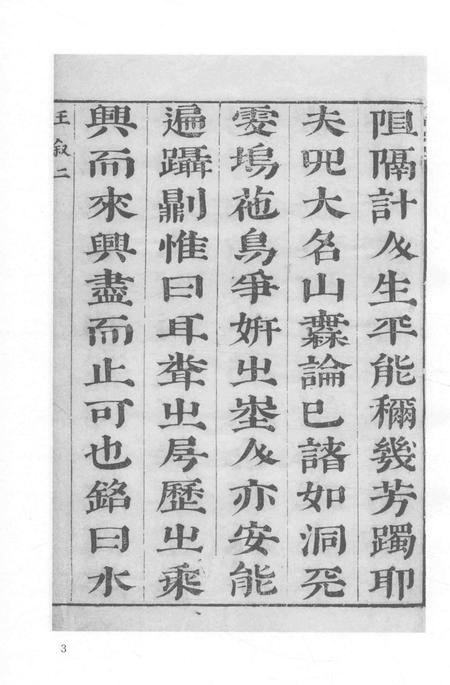 阻隔計人生平能穪幾芳躅耶
夫四大名山無論已諸如洞天
雲塢花鳥爭妍之壑人亦安能
遍躡則惟曰耳聳之身歷之乘
興而來興盡而止可也銘曰水
王敘二
3